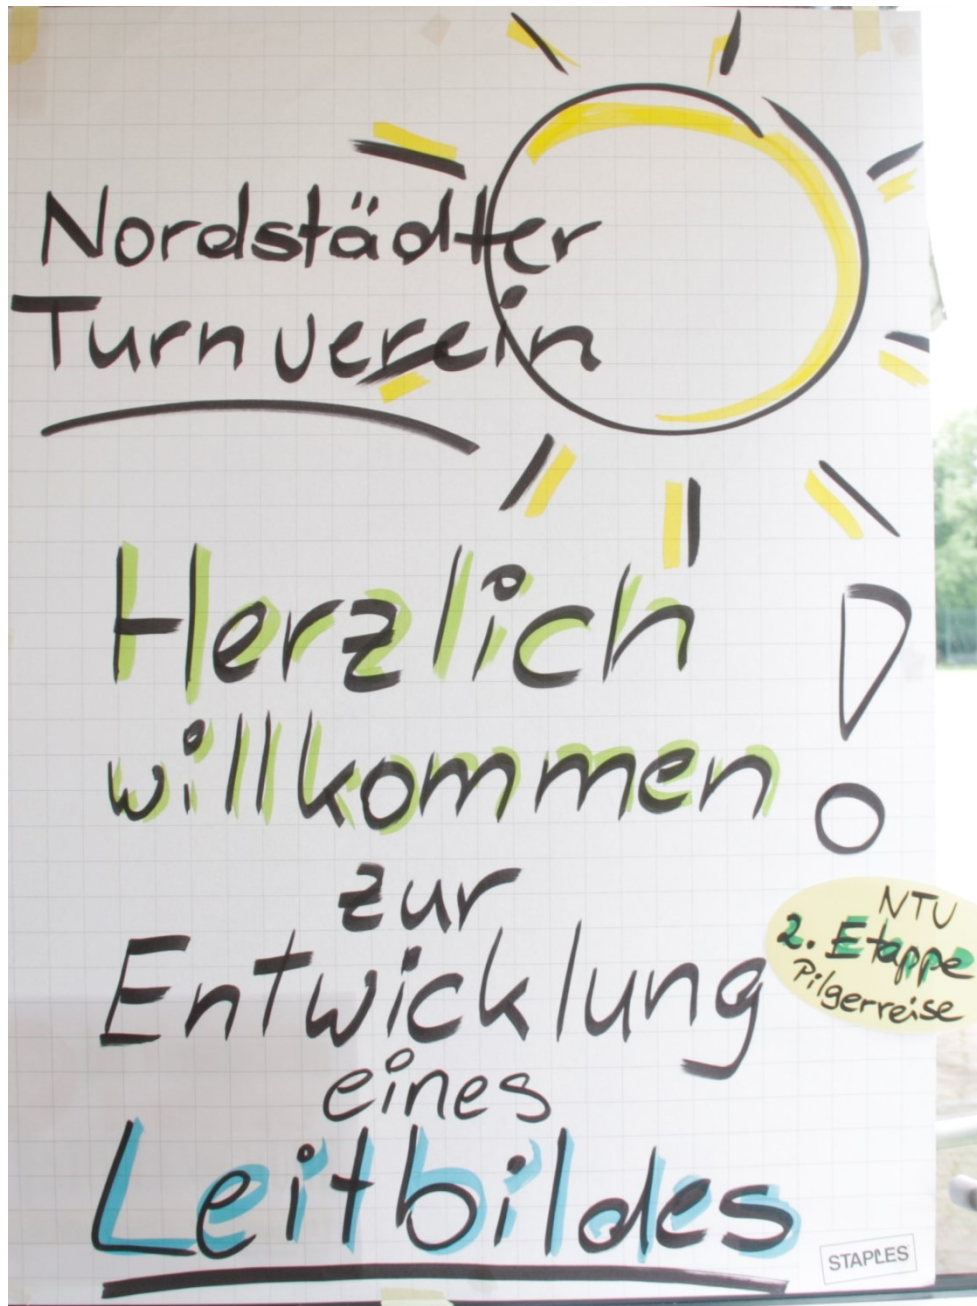 Nordstädter
Turnverein
Herzlich
willkommen!
zur
Entwicklung
eines
Leitbildes
NTU
2. Etappe
Pilgerreise
STAPLES